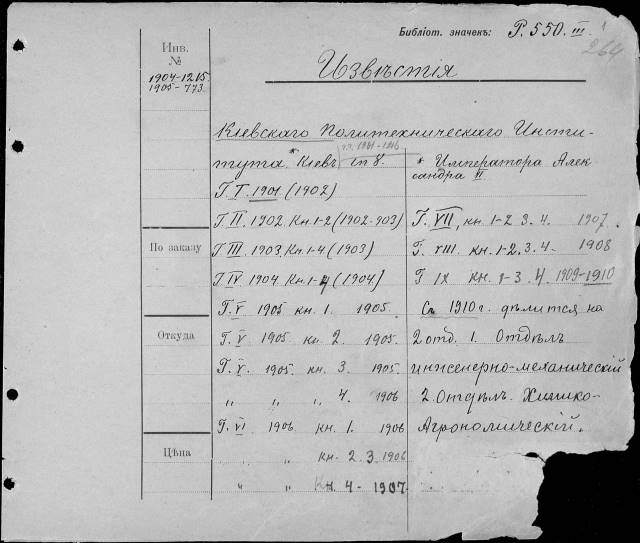 Библіот. значекъ: Р. 550. III
264
Извѣстія
Инв.
№
1904-1215
1905-773
Кіевскаго Политехническаго Инсти-
тута * Кіевъ in 8.
* Императора Алек-
сандра II
Г. I. 1901 (1902)
Г. II. 1902. Кн. 1-2 (1902-903)
Г. III. 1903. Кн. 1-4 (1903)
Г. IV. 1904 Кн. 1-4 (1904)
Г. V 1905 кн. 1. 1905.
Г. V 1905 кн. 2 1905.
Г. V. 1905. кн. 3. 1905
„ „ „ 4. 1906
Г. VI 1906 кн. 1. 1906
„ „ кн. 2. 3. 1906
„ „ Кн. 4 - 1907
Г. VII, кн. 1-2 3. 4. 1907.
Г. VIII кн. 1-2. 3. 4. 1908
Г IX кн. 1-3. 4. 1909-1910
Съ 1910 г. дѣлится на
2 отд. 1. Отдѣлъ
инженерно-механическій
2. Отдѣлъ. Химико-
Агрономическій.
По заказу
Откуда
Цѣна